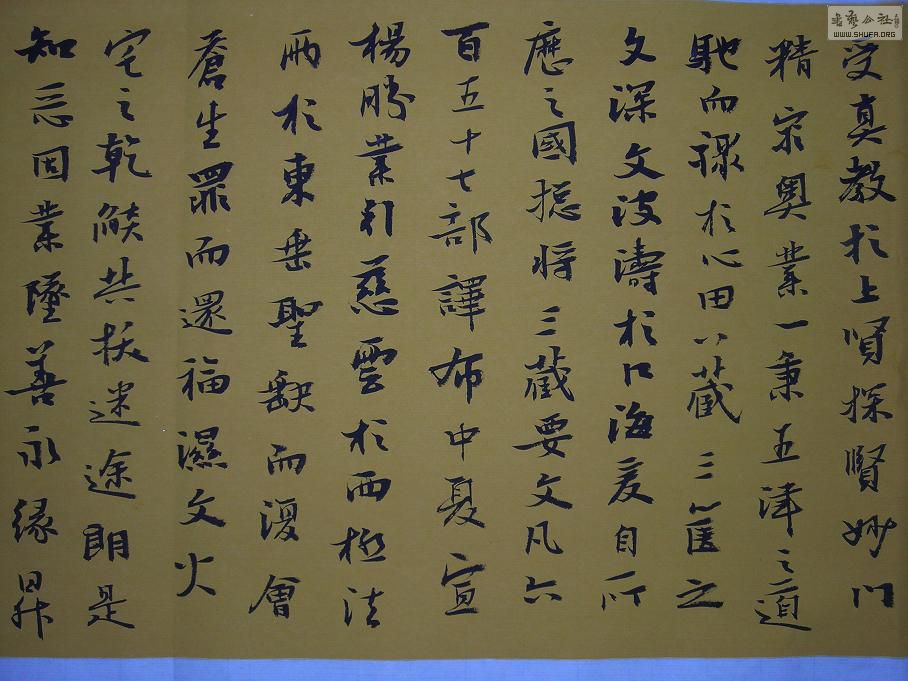 受真教於上賢探賢妙門
精宗奧業一乘五津之道
馳而驟於心田八藏三篋之
文深文波濤於口海爰自所
歷之國捴將三藏要文凡六
百五十七部譯布中夏宣
楊勝業引慈雲於西極法
雨於東垂聖缺而復會
蒼生罪而還福濕文火
宅之乾燄共拔迷途朗是
知惡因業墜善永緣昇
書藝公社
WWW.SHUFA.ORG